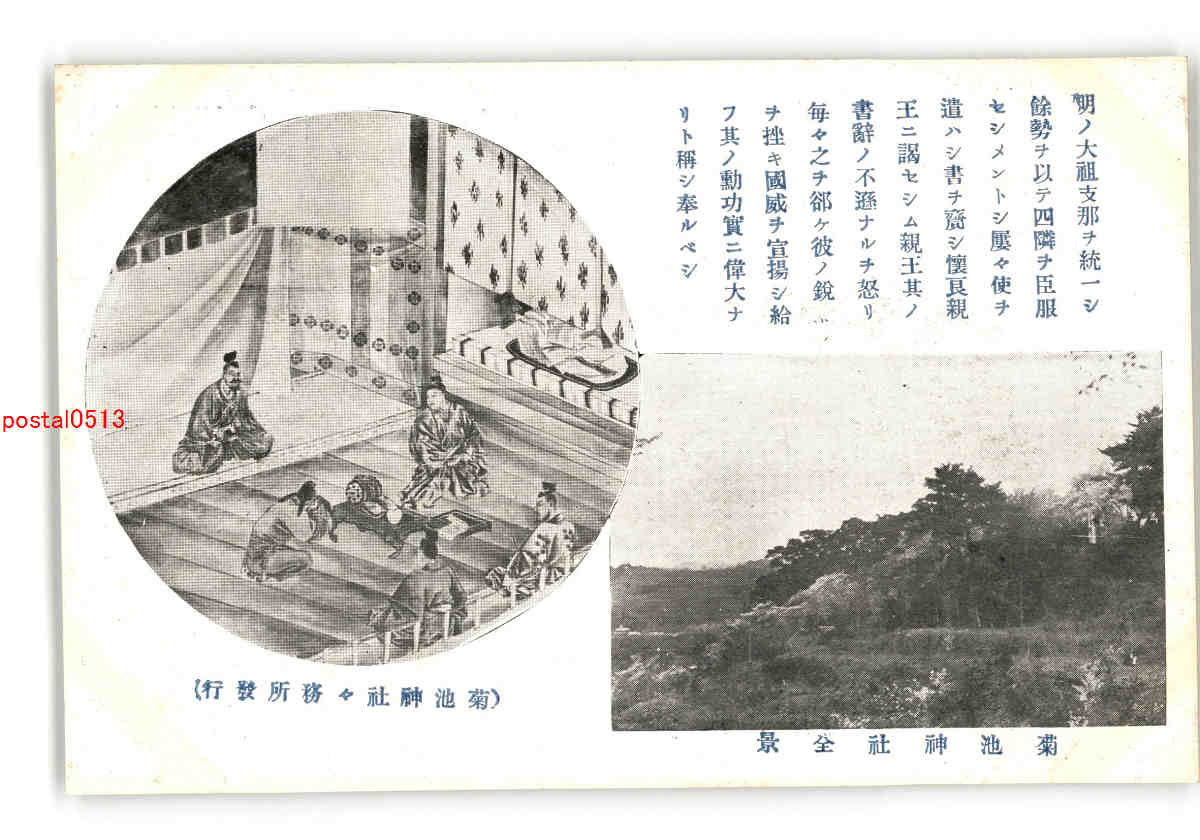 明ノ大祖支那ヲ統一シ
餘勢ヲ以テ四隣ヲ臣服
セシメントシ屢々使ヲ
遣ハシ書ヲ齎シ懷良親
王ニ謁セシム親王其ノ
書辭ノ不遜ナルヲ怒リ
每々之ヲ郤ケ彼ノ銳
ヲ挫キ國威ヲ宣揚シ給
フ其ノ勳功實ニ偉大ナ
リト稱シ奉ルベシ
postal0513
(菊池神社々務所發行)
菊池神社全景